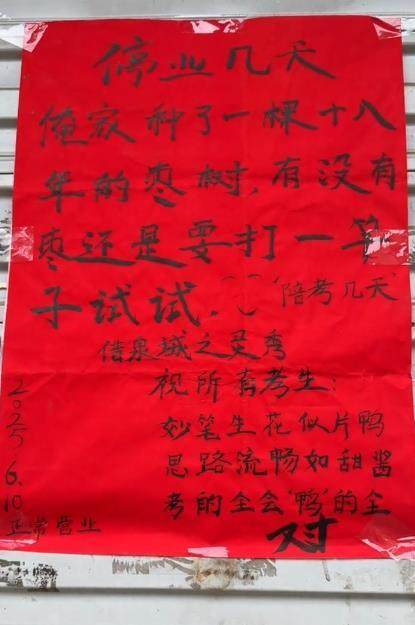 停业几天
俺家种了一棵十八
年的枣树,有没有
枣还是要打一竿
子试试.
陪考几天
借泉城之灵秀
祝所有考生:
妙笔生花似片鸭
思路流畅如甜酱
考的全会“鸭”的全
对
2025.6.10
正常营业